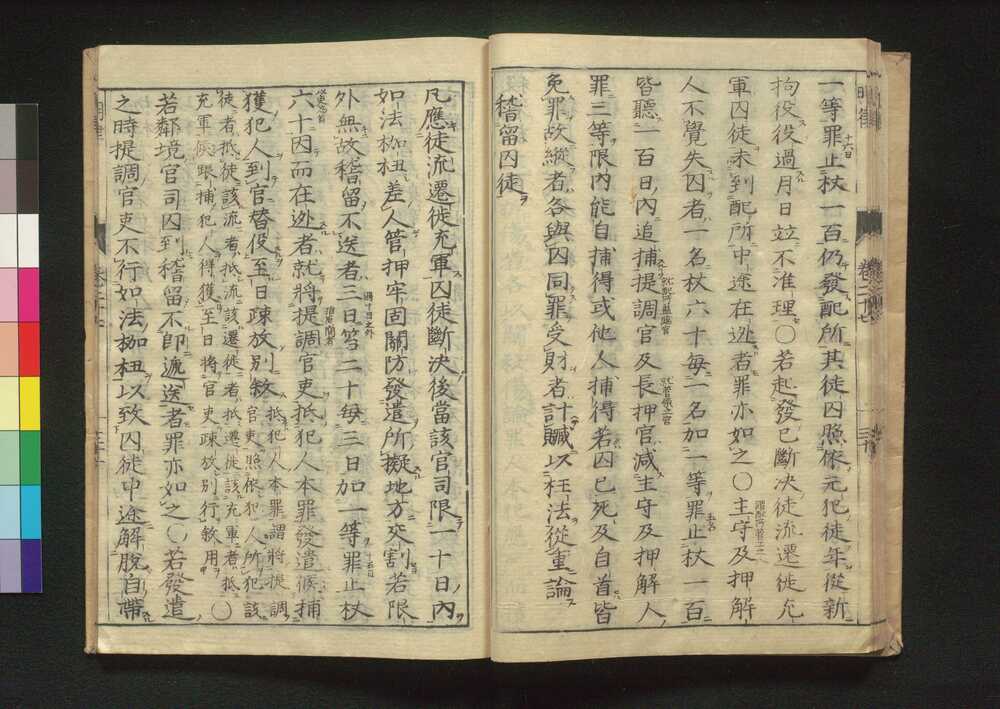 一等罪止杖一百仍發配所其徒囚照依元犯徒年從新
拘役役過月日並不准理〇若起發已斷決徒流遷徙充
軍囚徒未到配所中途在逃者罪亦如之〇主守及押解
人不覺失囚者一名杖六十每一名加一等罪止杖一百
皆聽一百日內追捕提調官及長押官減主守及押解人
罪三等限內能自捕得或他人捕得若囚已死及自首皆
免罪故縱者各與囚同罪受財者計贓以枉法從重論
稽留囚徒
凡應徒流遷徙充軍囚徒斷決後當該官司限一十日內
如法枷杻差人管押牢固關防發遣所擬地方交割若限
外無故稽留不送者三日笞二十每三日加一等罪止杖
六十因而在逃者就將提調官吏抵犯人本罪發遣候捕
獲犯人到官替役至日疎放別敘
抵犯人本罪謂將提調
官吏照依犯人所犯該
徒者抵徒該流者抵流該遷徙者抵遷徙該充軍者抵
充軍候跟捕犯人得獲至日將官吏疎放別行敘用〇
若鄰境官司囚到稽留不即遞送者罪亦如之〇若發遣
之時提調官吏不行如法枷杻以致囚徒中途解脫自帶